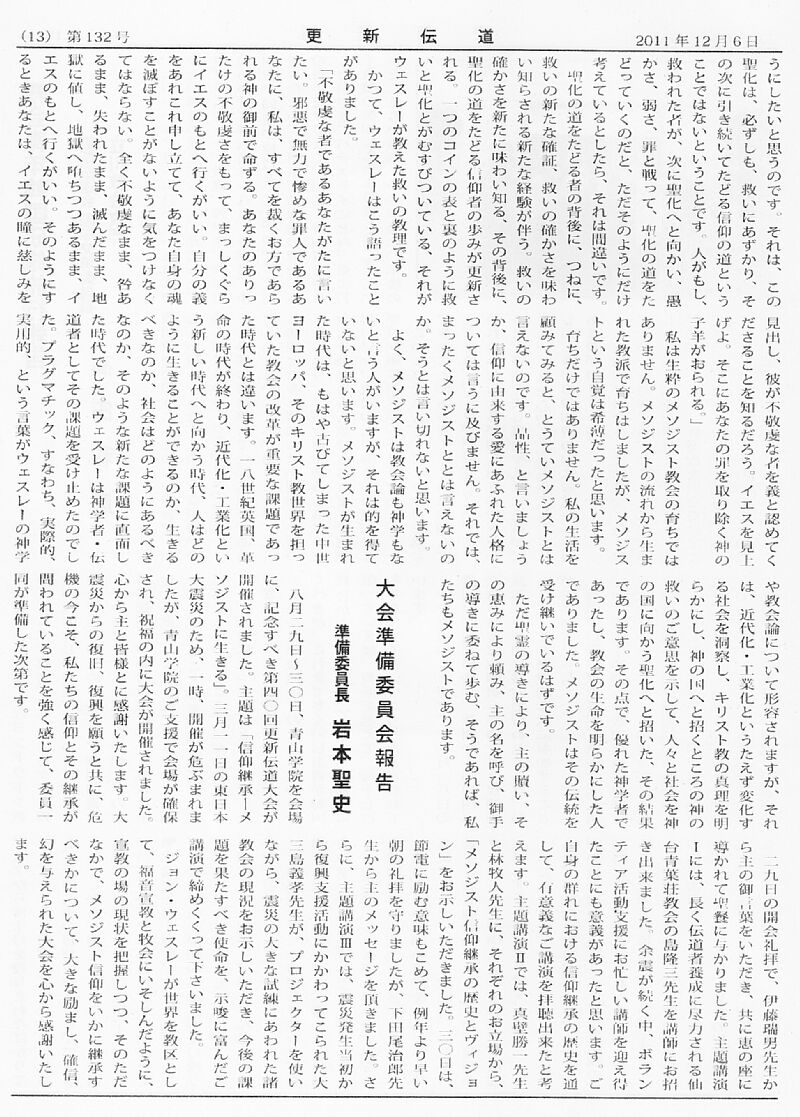 (13) 第132号
更新伝道
2011年12月6日
うにしたいと思うのです。それは、この
聖化は、必ずしも、救いにあずかり、そ
の次に引き続いてたどる信仰の道という
ことではないということです。人がもし、
救われた者が、次に聖化へと向かい、愚
かさ、弱さ、罪と戦って、聖化の道をた
どっていくのだと、ただそのようにだけ
考えているとしたら、それは間違いです。
聖化の道をたどる者の背後に、つねに、
救いの新たな確証、救いの確かさを味わ
い知らされる新たな経験が伴う。救いの
確かさを新たに味わい知る、その背後に、
聖化の道をたどる信仰者の歩みが更新さ
れる。一つのコインの表と裏のように救
いと聖化とがむすびついている、それが
ウェスレーが教えた救いの教理です。
かつて、ウェスレーはこう語ったこと
がありました。
「不敬虔な者であるあなたがたに言い
たい。邪悪で無力で惨めな罪人であるあ
なたに、私は、すべてを裁くお方であら
れる神の御前で命ずる。あなたのありっ
たけの不敬虔さをもって、まっしぐら
にイエスのもとへ行くがいい。自分の義
をあれこれ申し立てて、あなた自身の魂
を滅ぼすことがないように気をつけなく
てはならない。全く不敬虔なまま、咎あ
るまま、失われたまま、滅んだまま、地
獄に値し、地獄へ堕ちつつあるまま、イ
エスのもとへ行くがいい。そのようにす
るときあなたは、イエスの瞳に慈しみを
見出し、彼が不敬虔な者を義と認めてく
ださることを知るだろう。イエスを見上
げよ。そこにあなたの罪を取り除く神の
子羊がおられる。」
私は生粋のメソジスト教会の育ちでは
ありません。メソジストの流れから生ま
れた教派で育ちはしましたが、メソジス
トという自覚は希薄だったと思います。
育ちだけではありません。私の生活を
顧みてみると、とうていメソジストとは
言えないのです。品性、と言いましょう
か、信仰に由来する愛にあふれた人格に
ついては言うに及びません。それでは、
まったくメソジストとは言えないの
か。そうとは言い切れないと思います。
よく、メソジストは教会論も神学もな
いと言う人がいますが、それは的を得て
いないと思います。メソジストが生まれ
た時代は、もはや古びてしまった中世
ヨーロッパ、そのキリスト教世界を担っ
ていた教会の改革が重要な課題であっ
た時代とは違います。一八世紀英国、革
命の時代が終わり、近代化・工業化とい
う新しい時代へと向かう時代、人はどの
ように生きることができるのか、生きる
べきなのか、社会はどのようにあるべき
なのか、そのような新たな課題に直面し
た時代でした。ウェスレーは神学者・伝
道者としてその課題を受け止めたのでし
た。プラグマチック、すなわち、実際的、
実用的、という言葉がウェスレーの神学
や教会論について形容されますが、それ
は、近代化・工業化というたえず変化す
る社会を洞察し、キリスト教の真理を明
らかにし、神の国へと招くところの神の
救いのご意思を示して、人々と社会を神
の国に向かう聖化へと招いた、その結果
であります。その点で、優れた神学者で
あったし、教会の生命を明らかにした人
でありました。メソジストはその伝統を
受け継いでいるはずです。
ただ聖霊の導きにより、主の贖い、そ
の恵みにより頼み、主の名を呼び、御手
の導きに委ねて歩む、そうであれば、私
たちもメソジストであります。
大会準備委員会報告
準備委員長 岩本聖史
八月二九日～三〇日、青山学院を会場
に、記念すべき第四〇回更新伝道大会が
開催されました。主題は「信仰継承―メ
ソジストに生きる」。三月一一日の東日本
大震災のため、一時、開催が危ぶまれま
したが、青山学院のご支援で会場が確保
され、祝福の内に大会が開催されました。
心から主と皆様とに感謝いたします。大
震災からの復旧、復興を願うと共に、危
機の今こそ、私たちの信仰とその継承が
問われていることを強く感じて、委員一
同が準備した次第です。
二九日の開会礼拝で、伊藤瑞男先生か
ら主の御言葉をいただき、共に恵の座に
導かれて聖餐に与かりました。主題講演
Ⅰには、長く伝道者養成に尽力される仙
台青葉荘教会の島隆三先生を講師にお招
き出来ました。余震が続く中、ボラン
ティア活動支援にお忙しい講師を迎え得
たことにも意義があったと思います。ご
自身の群れにおける信仰継承の歴史を通
して、有意義なご講演を拝聴出来たと考
えます。主題講演Ⅱでは、真壁勝一先生
と林牧人先生に、それぞれのお立場から、
「メソジスト信仰継承の歴史とヴィジョ
ン」をお示しいただきました。三〇日は、
節電に励む意味もこめて、例年より早い
朝の礼拝を守りましたが、下田尾治郎先
生から主のメッセージを頂きました。さ
らに、主題講演Ⅲでは、震災発生当初か
ら復興支援活動にかかわってこられた大
三島義孝先生が、プロジェクターを使い
ながら、震災の大きな試練にあわれた諸
教会の現況をお示しいただき、今後の課
題を果たすべき使命を、示唆に富んだご
講演で締めくくって下さいました。
ジョン・ウェスレーが世界を教区とし
て、福音宣教と牧会にいそしんだように、
宣教の場の現状を把握しつつ、そのただ
なかで、メソジスト信仰をいかに継承す
べきかについて、大きな励まし、確信、
幻を与えられた大会を心から感謝いたし
ます。